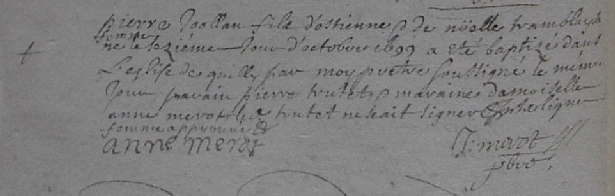 pierre Joallan fils d'estienne & de nöelle tramblay sa
femme
né le sezième Jour d'octobre 1699 a eté baptizé dans
L'eglise de quilly par moy prestre soussigné le meme
Jour parain pierre trutet & maraine damoiselle
anne merot le trutet ne sait signer
femme approuvé
anne merot
merot
pbre